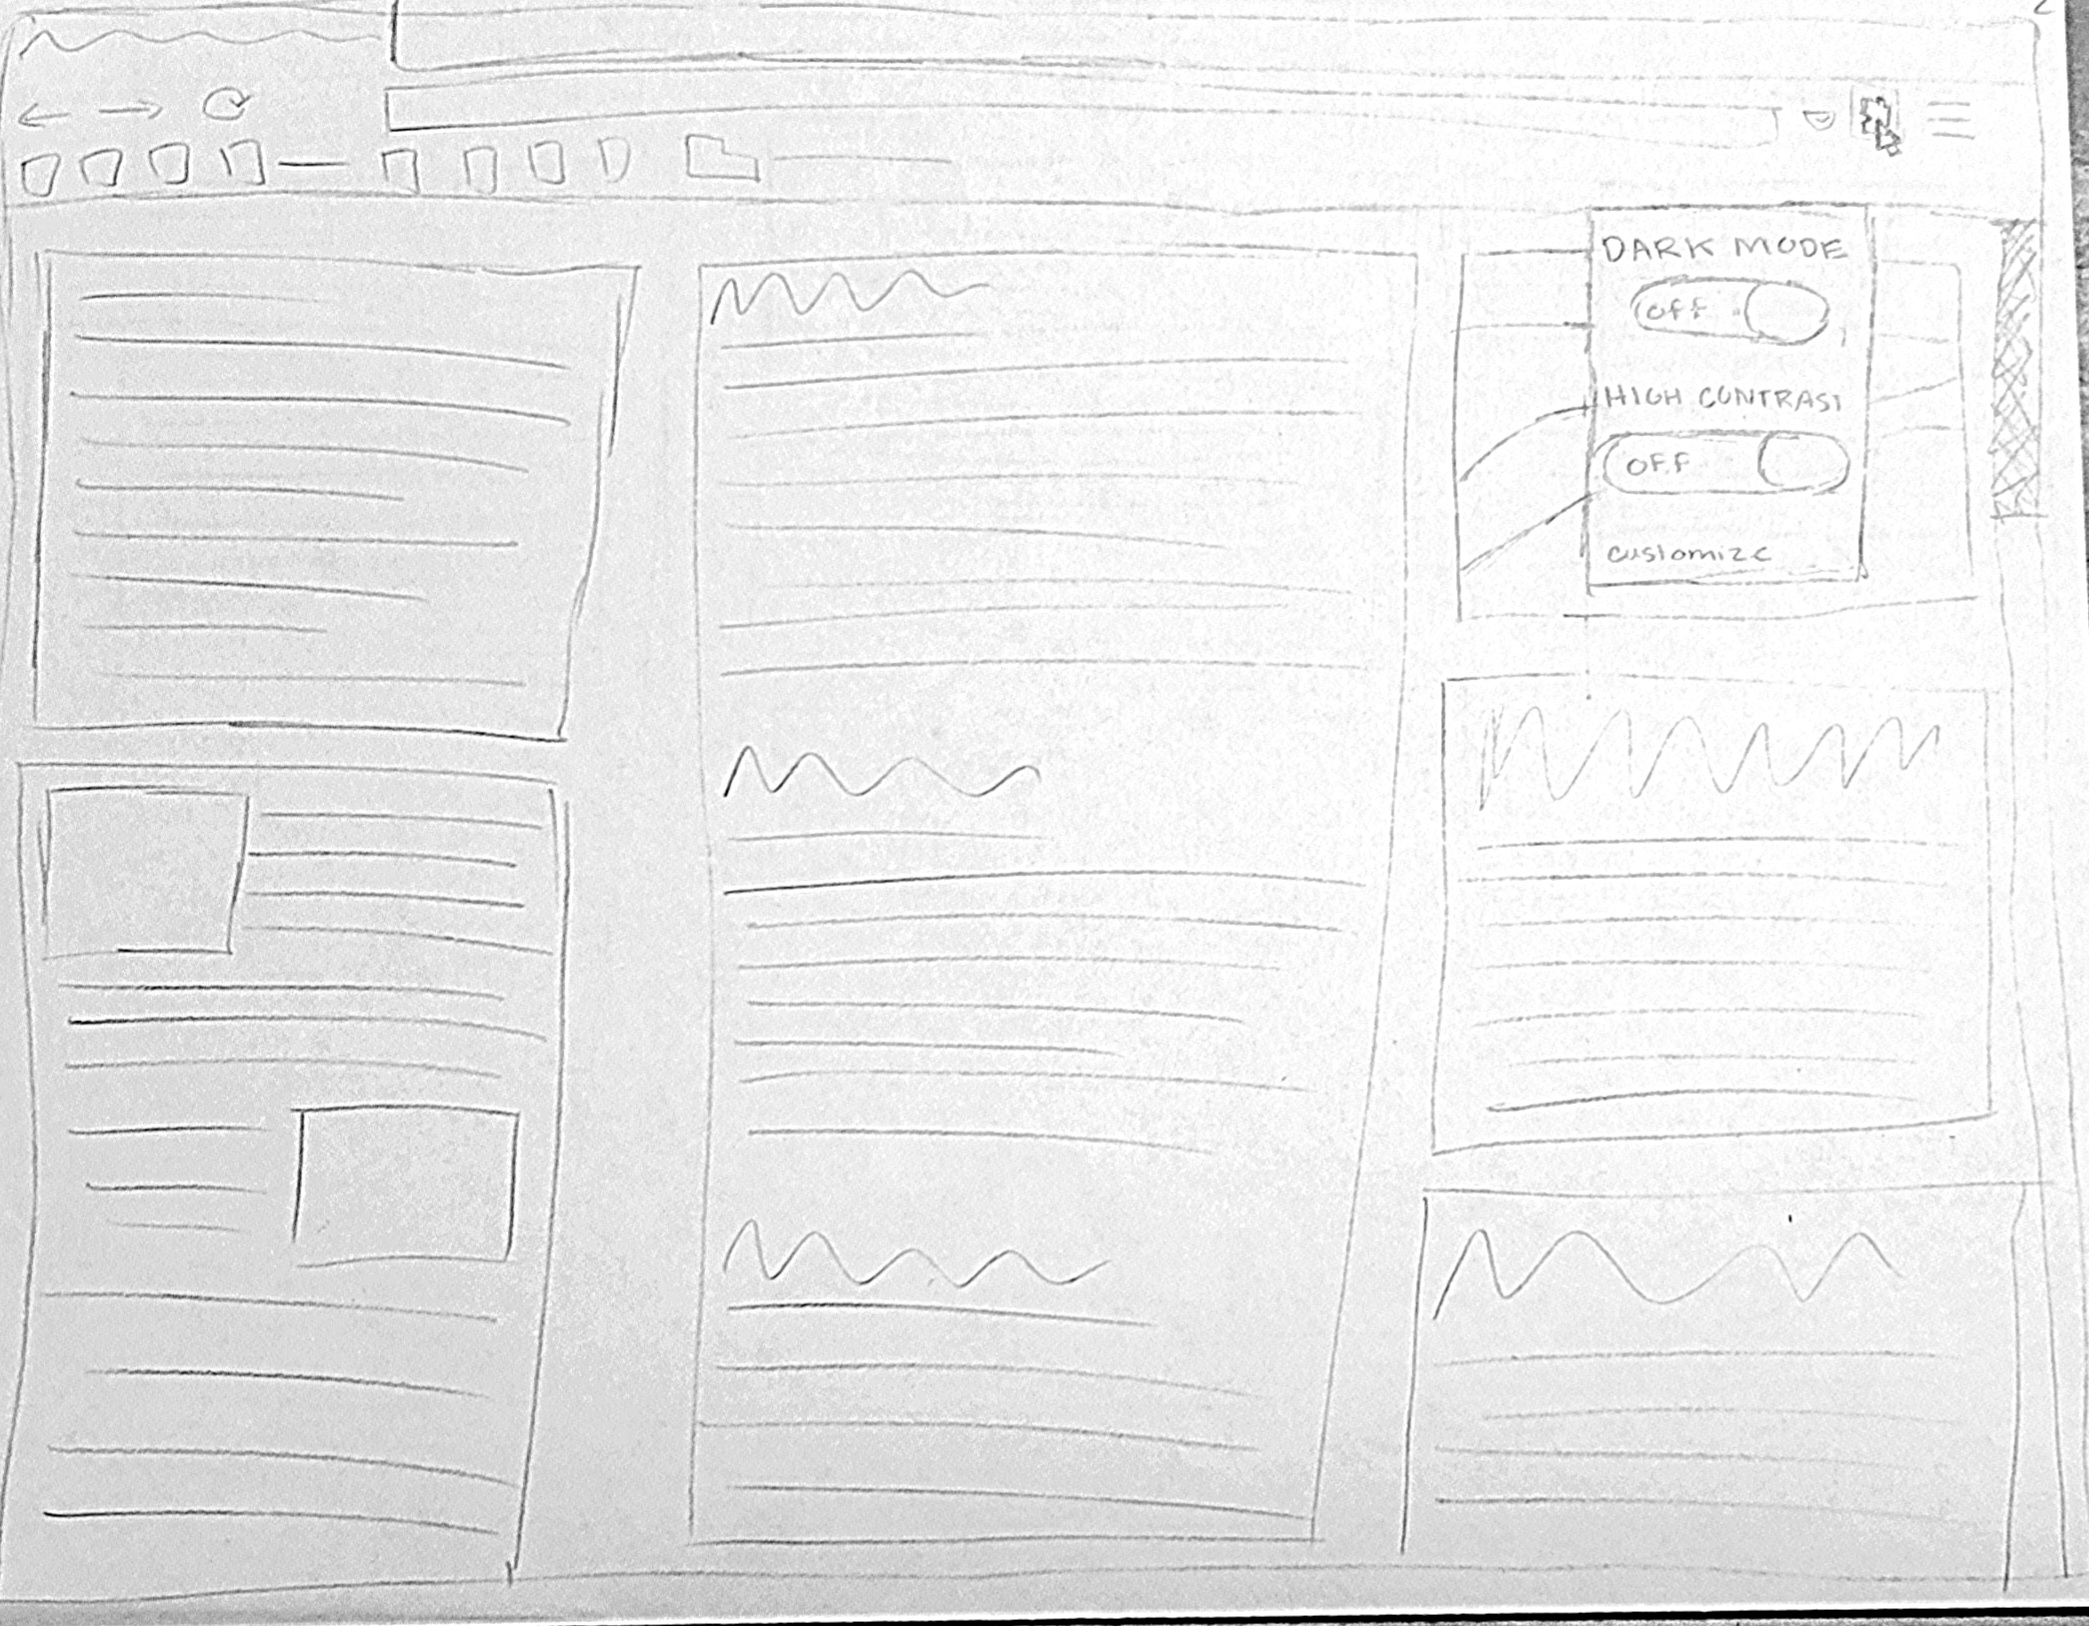 DARK MODE
OFF
HIGH CONTRAST
OFF
customize